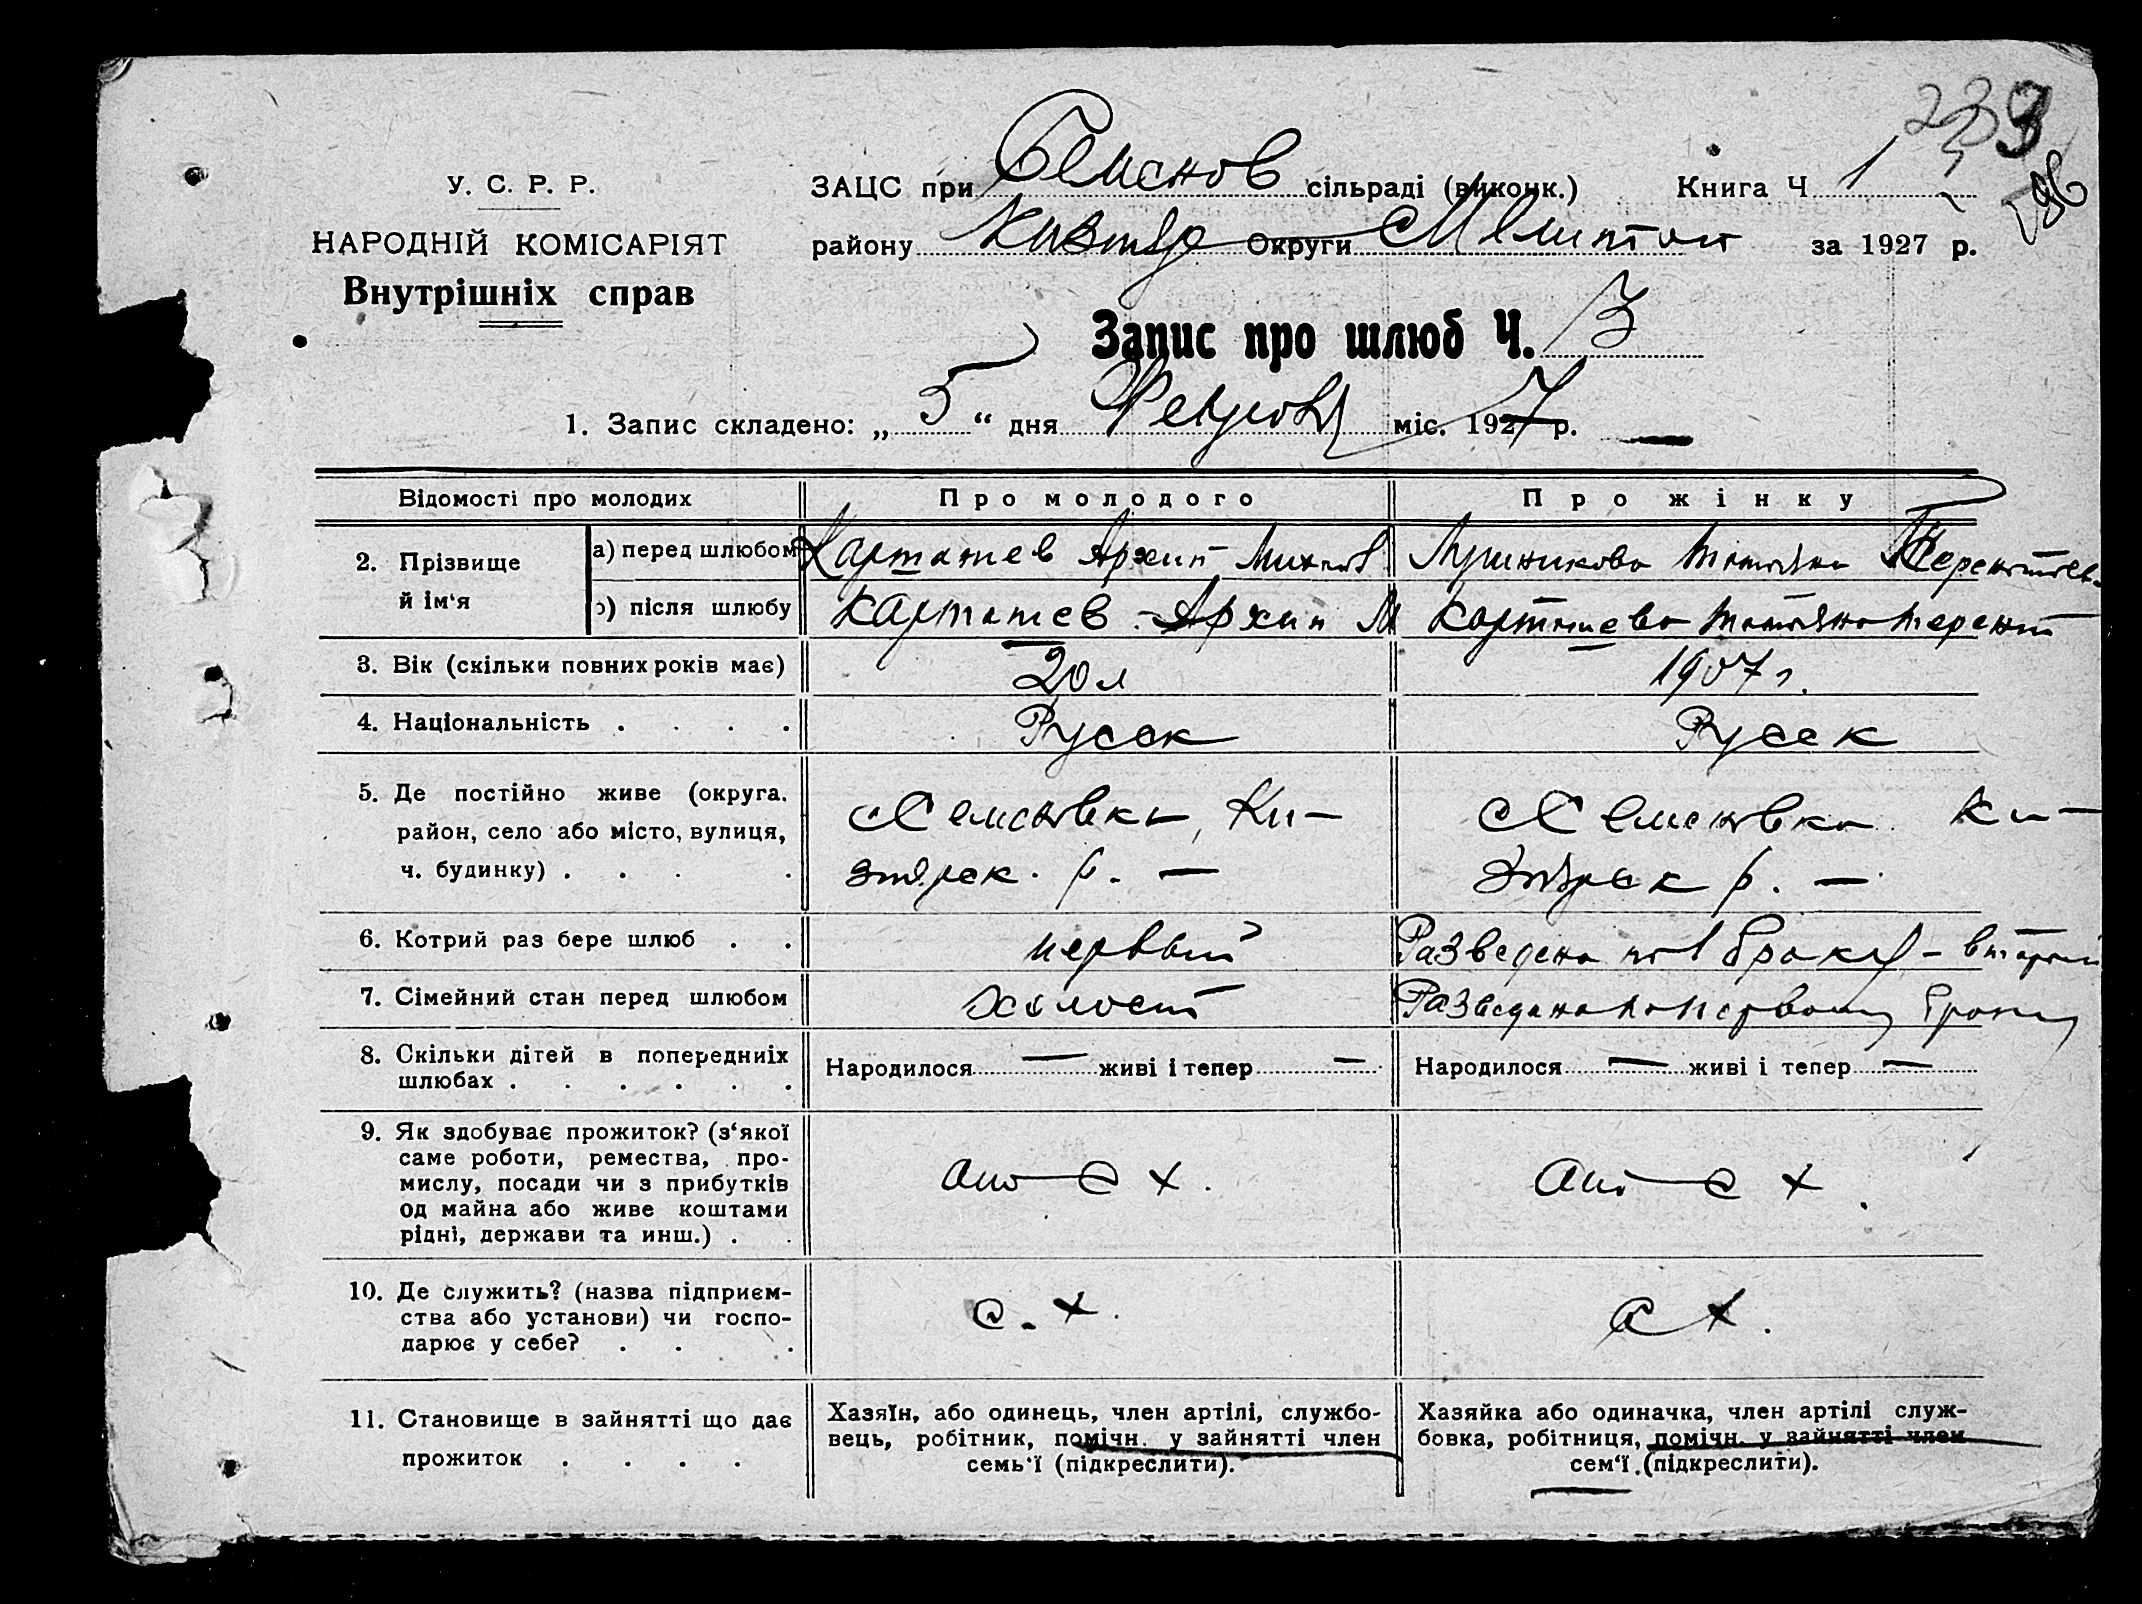 239
196
У. С. Р. Р.
НАРОДНІЙ КОМІСАРІЯТ
Внутрішніх справ
ЗАЦС при Семенов сільраді (виконк.) Книга Ч 1
району Кизтяр Округи Мелитоп за 1927 р.
Запис про шлюб Ч. 3
1. Запис складено: „ 5 “ дня міс. 1927 р.
Відомості про молодих Про молодого Про жінку
2. Прізвище й ім‘я
а) перед шлюбом Карташев Архип Михайл Лушникова Татьяна Терентьев
після шлюбу Карташев Архип М Карташева Татьяна Терент
3. Вік (скільки повних років має) 20 л 1907 г.
4. Національність . . . . Русск Русск
5. Де постійно живе (округа, район, село або місто, вулиця, ч. будинку) . . . .
с Семеновка, Ки-
зтярск. р. —
с Семеновка Ки-
зтярск р. —
6. Котрий раз бере шлюб . . первый Разведена по 1 браку – второй
7. Сімейний стан перед шлюбом холост Разведена по первому браку
8. Скільки дітей в попередниіх шлюбах . . . . . .
Народилося — живі і тепер — Народилося — живі і тепер —
9. Як здобуває прожиток? (з‘якої
саме роботи, ремества, про-
мислу, посади чи з прибутків
од майна або живе коштами
рідні, держави та инш.) . .
с х. с х.
10. Де служить? (назва підприєм-
ства або установи) чи госпо-
дарює у себе? . . .
с. х. с х.
11. Становище в зайнятті що дає
прожиток . . . .
Хазяїн, або одинець, член артілі, службо-
вець, робітник, помічн. у зайнятті член
семь‘ї (підкреслити).
Хазяйка або одиначка, член артілі служ-
бовка, робітниця, помічн. у зайнятті член
сем‘ї (підкреслити).